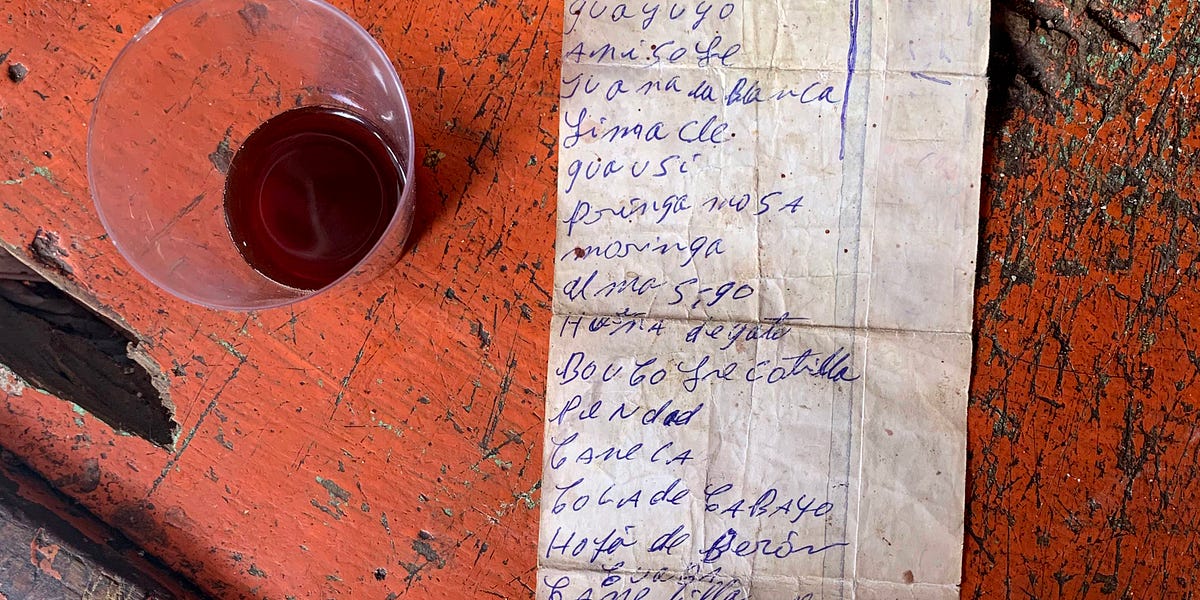 guayuyo
Anisose
Juana la Blanca
Lima cle
guausi
Pringa mosA
moringa
almasigo
HoñA degato
Boubo frecotilla
Pendad
CANeLA
CoLA de CABAYO
Hoja de Berón
Cuaba
CANetilla